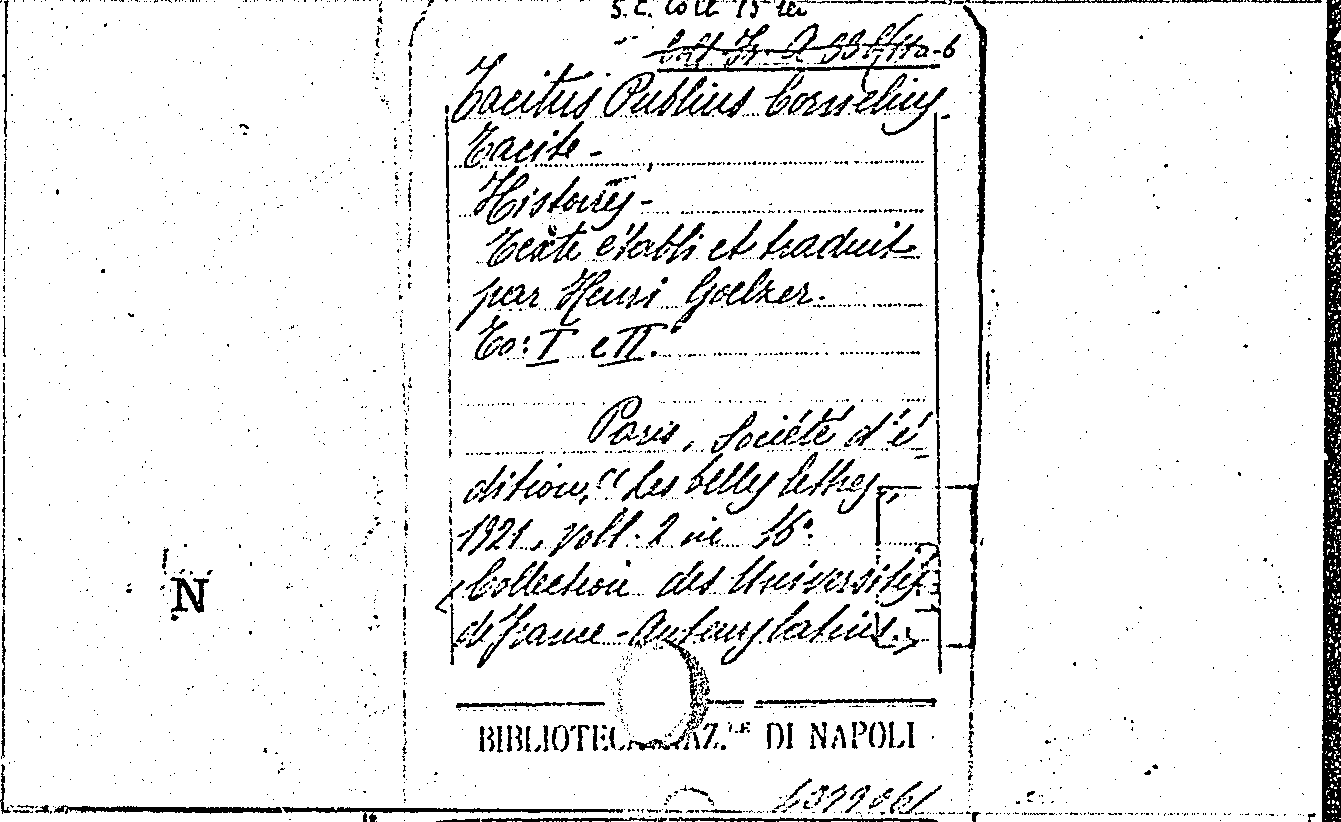 S.C. Coll 15
Tacitus Publius Cornelius
Tacite -
Histoires -
Texte établi et traduit
par Henri Goelzer.
To: I e II.
Paris, Société d'é-
dition, "Les belles lettres,,
1921. voll. 2 in 16°.
(Collection des Universités
de France - Auteurs latins.)
N
BIBLIOTECA NAZ.LE DI NAPOLI